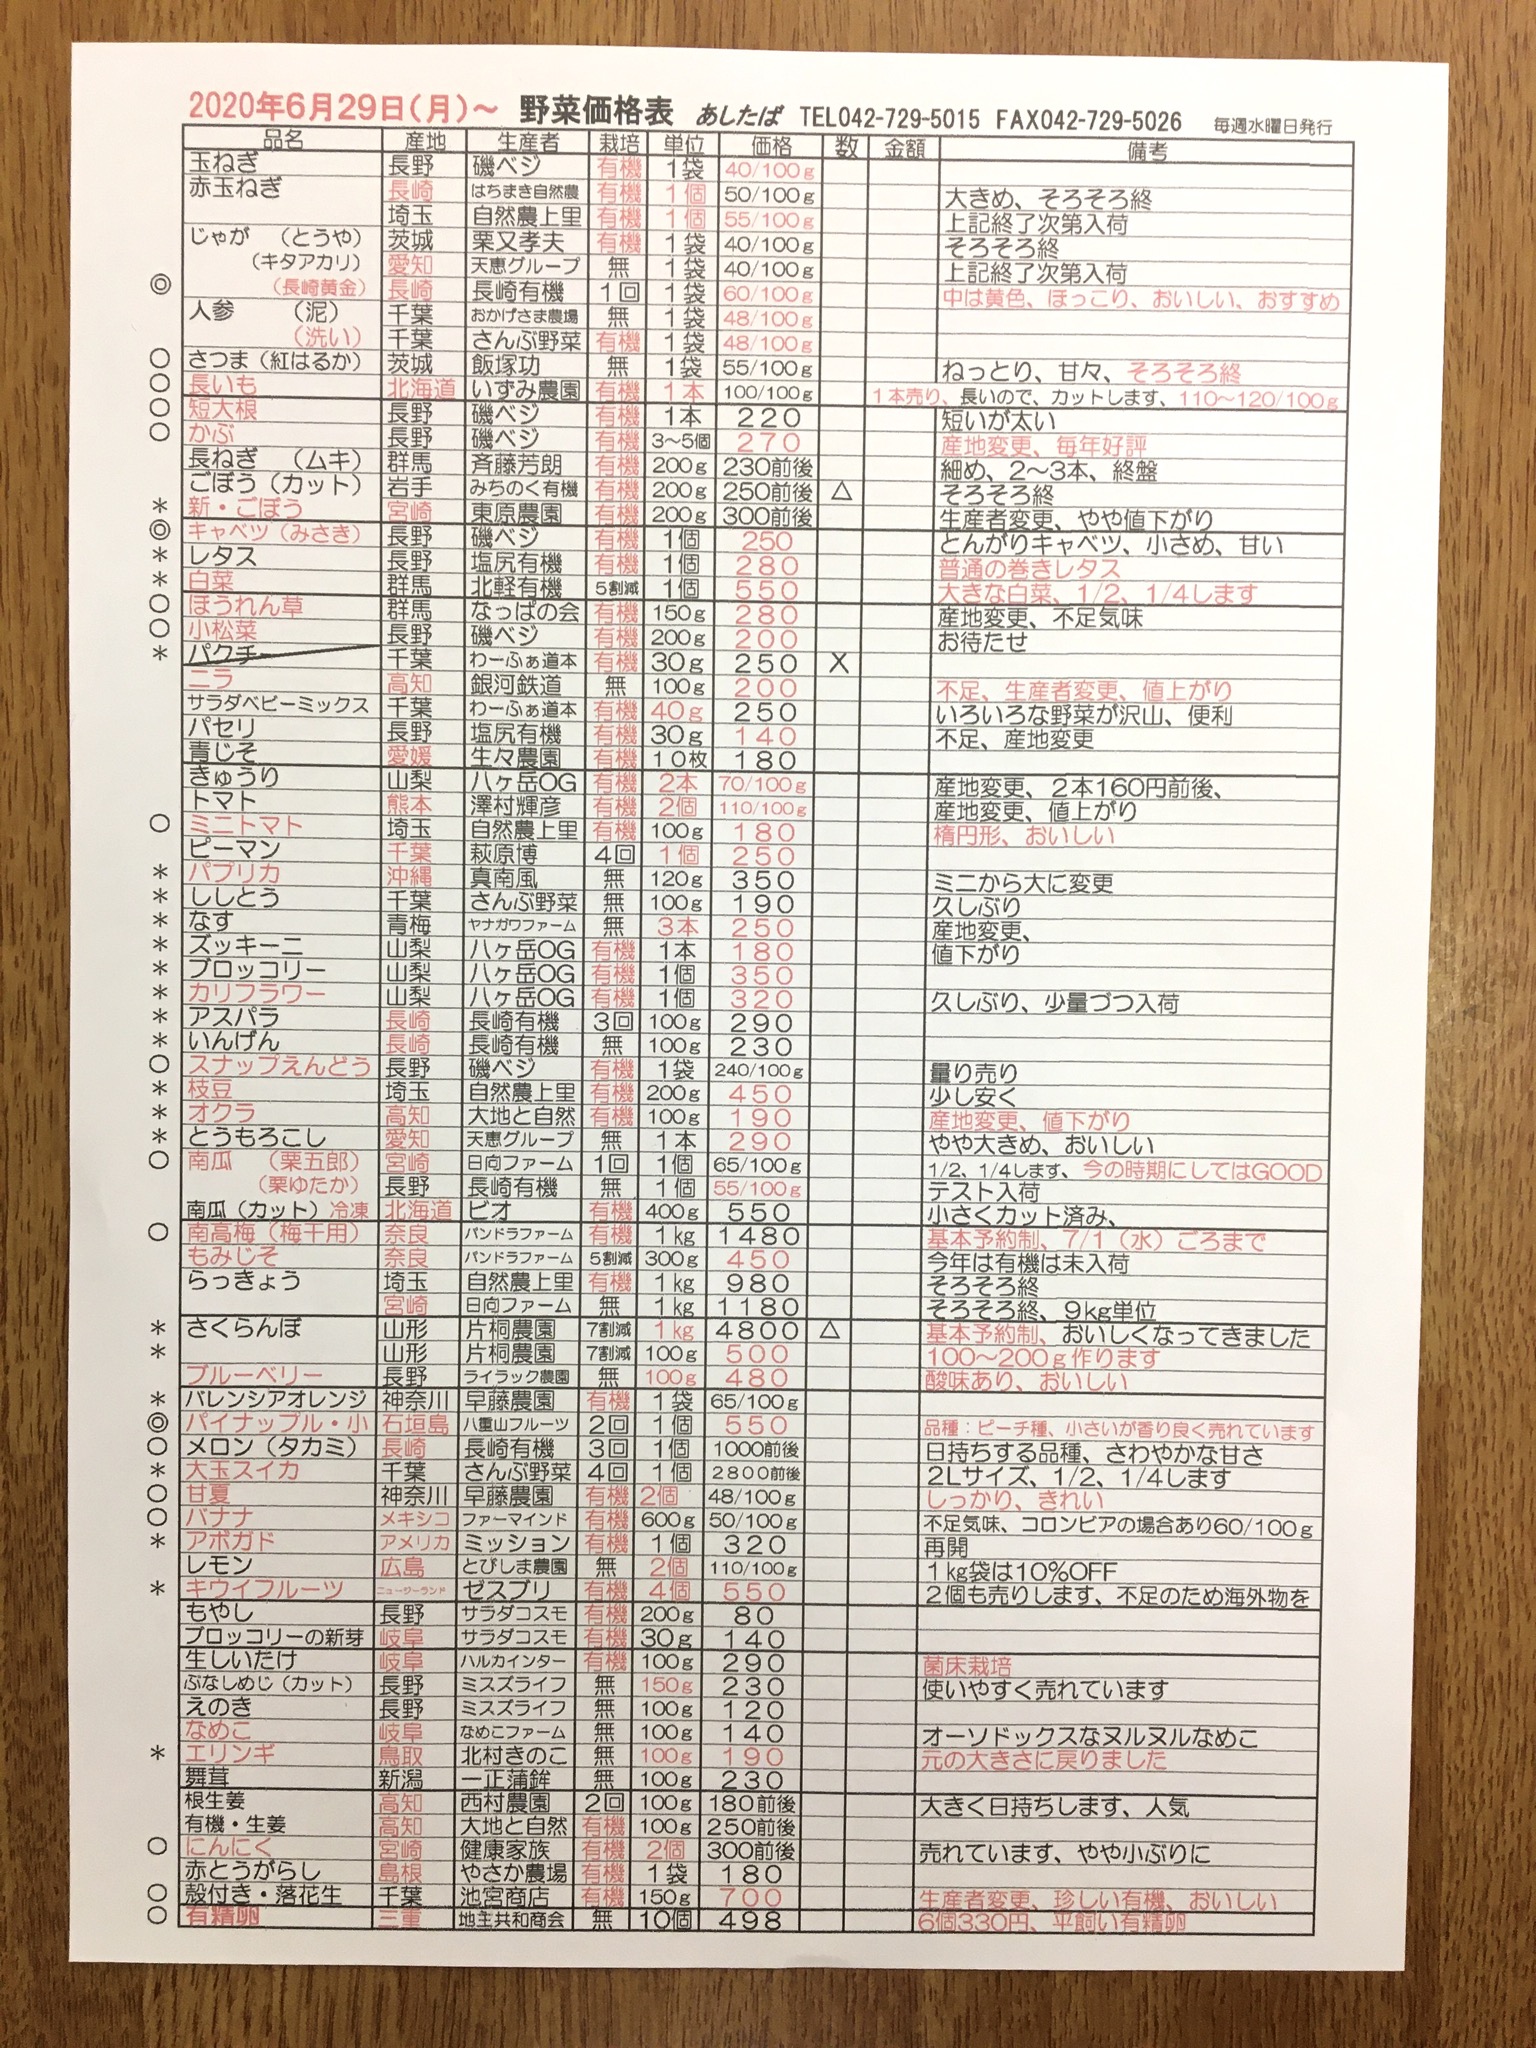 2020年6月29日(月)～ 野菜価格表 あしたば TEL042-729-5015 FAX042-729-5026 毎週水曜日発行
品名 産地 生産者 栽培 単位 価格 数 金額 備考
玉ねぎ 長野 磯ベジ 有機 1袋 40/100g
赤玉ねぎ 長崎 はちまき自然農 有機 1個 50/100g 大きめ、そろそろ終
埼玉 自然農上里 有機 1個 55/100g 上記終了次第入荷
じゃが (とうや) 茨城 栗又孝夫 有機 1袋 40/100g そろそろ終
(キタアカリ) 愛知 天恵グループ 無 1袋 40/100g 上記終了次第入荷
◎ (長崎黄金) 長崎 長崎有機 1回 1袋 60/100g 中は黄色、ほっこり、おいしい、おすすめ
人参 (泥) 千葉 おかげさま農場 無 1袋 48/100g
(洗い) 千葉 さんぶ野菜 有機 1袋 48/100g
○ さつま(紅はるか) 茨城 飯塚功 無 1袋 55/100g ねっとり、甘々、そろそろ終
○ 長いも 北海道 いずみ農園 有機 1本 100/100g 1本売り、長いので、カットします、110～120/100g
○ 短大根 長野 磯ベジ 有機 1本 220 短いが太い
○ かぶ 長野 磯ベジ 有機 3～5個 270 産地変更、毎年好評
長ねぎ (ムキ) 群馬 斉藤芳朗 有機 200g 230前後 細め、2～3本、終盤
ごぼう(カット) 岩手 みちのく有機 有機 200g 250前後 △ そろそろ終
* 新・ごぼう 宮崎 東原農園 有機 200g 300前後 生産者変更、やや値下がり
◎ キャベツ(みさき) 長野 磯ベジ 有機 1個 250 とんがりキャベツ、小さめ、甘い
* レタス 長野 塩尻有機 有機 1個 280 普通の巻きレタス
* 白菜 群馬 北軽有機 5割減 1個 550 大きな白菜、1/2、1/4します
○ ほうれん草 群馬 なっぱの会 有機 150g 280 産地変更、不足気味
○ 小松菜 長野 磯ベジ 有機 200g 200 お待たせ
* パクチー 千葉 わーふぁ道本 有機 30g 250 X
ニラ 高知 銀河鉄道 無 100g 200 不足、生産者変更、値上がり
サラダベビーミックス 千葉 わーふぁ道本 有機 40g 250 いろいろな野菜が沢山、便利
パセリ 長野 塩尻有機 有機 30g 140 不足、産地変更
青じそ 愛媛 生々農園 有機 10枚 180
きゅうり 山梨 八ヶ岳OG 有機 2本 70/100g 産地変更、2本160円前後、
トマト 熊本 澤村輝彦 有機 2個 110/100g 産地変更、値上がり
○ ミニトマト 埼玉 自然農上里 有機 100g 180 楕円形、おいしい
ピーマン 千葉 萩原博 4回 1個 250
* パプリカ 沖縄 真南風 無 120g 350 ミニから大に変更
* ししとう 千葉 さんぶ野菜 無 100g 190 久しぶり
* なす 青梅 ヤナガワファーム 無 3本 250 産地変更、
* ズッキーニ 山梨 八ヶ岳OG 有機 1本 180 値下がり
* ブロッコリー 山梨 八ヶ岳OG 有機 1個 350
* カリフラワー 山梨 八ヶ岳OG 有機 1個 320 久しぶり、少量づつ入荷
* アスパラ 長崎 長崎有機 3回 100g 290
* いんげん 長崎 長崎有機 無 100g 230
○ スナップえんどう 長野 磯ベジ 有機 1袋 240/100g 量り売り
* 枝豆 埼玉 自然農上里 有機 200g 450 少し安く
* オクラ 高知 大地と自然 有機 100g 190 産地変更、値下がり
* とうもろこし 愛知 天恵グループ 無 1本 290 やや大きめ、おいしい
○ 南瓜 (栗五郎) 宮崎 日向ファーム 1回 1個 65/100g 1/2、1/4します、今の時期にしてはGOOD
(栗ゆたか) 長野 長崎有機 無 1個 55/100g テスト入荷
南瓜(カット)冷凍 北海道 ビオ 有機 400g 550 小さくカット済み、
○ 南高梅(梅干用) 奈良 パンドラファーム 有機 1kg 1480 基本予約制、7/1(水)ごろまで
もみじそ 奈良 パンドラファーム 5割減 300g 450 今年は有機は未入荷
らっきょう 埼玉 自然農上里 有機 1kg 980 そろそろ終
宮崎 日向ファーム 無 1kg 1180 そろそろ終、9kg単位
* さくらんぼ 山形 片桐農園 7割減 1kg 4800 △ 基本予約制、おいしくなってきました
* 山形 片桐農園 7割減 100g 500 100～200g作ります
ブルーベリー 長野 ライラック農園 無 100g 480 酸味あり、おいしい
* バレンシアオレンジ 神奈川 早藤農園 有機 1袋 65/100g
◎ パイナップル・小 石垣島 八重山フルーツ 2回 1個 550 品種：ピーチ種、小さいが香り良く売れています
○ メロン(タカミ) 長崎 長崎有機 3回 1個 1000前後 日持ちする品種、さわやかな甘さ
* 大玉スイカ 千葉 さんぶ野菜 4回 1個 2800前後 2Lサイズ、1/2、1/4します
○ 甘夏 神奈川 早藤農園 有機 2個 48/100g しっかり、きれい
○ バナナ メキシコ ファーマインド 有機 600g 50/100g 不足気味、コロンビアの場合あり60/100g
* アボガド アメリカ ミッション 有機 1個 320 再開
レモン 広島 とびしま農園 無 2個 110/100g 1kg袋は10%OFF
* キウイフルーツ ニュージーランド ゼスプリ 有機 4個 550 2個も売りします、不足のため海外物を
もやし 長野 サラダコスモ 有機 200g 80
ブロッコリーの新芽 岐阜 サラダコスモ 有機 30g 140
生しいたけ 岐阜 ハルカインター 有機 100g 290 菌床栽培
ぶなしめじ(カット) 長野 ミスズライフ 無 150g 230 使いやすく売れています
えのき 長野 ミスズライフ 無 100g 120
なめこ 岐阜 なめこファーム 無 100g 140 オーソドックスなヌルヌルなめこ
* エリンギ 鳥取 北村きのこ 無 100g 190 元の大きさに戻りました
舞茸 新潟 一正蒲鉾 無 100g 230
根生姜 高知 西村農園 2回 100g 180前後 大きく日持ちします、人気
有機・生姜 高知 大地と自然 有機 100g 250前後
○ にんにく 宮崎 健康家族 有機 2個 300前後 売れています、やや小ぶりに
赤とうがらし 島根 やさか農場 有機 1袋 180
○ 殻付き・落花生 千葉 池宮商店 有機 150g 700 生産者変更、珍しい有機、おいしい
○ 有精卵 三重 地主共和商会 無 10個 498 6個330円、平飼い有精卵